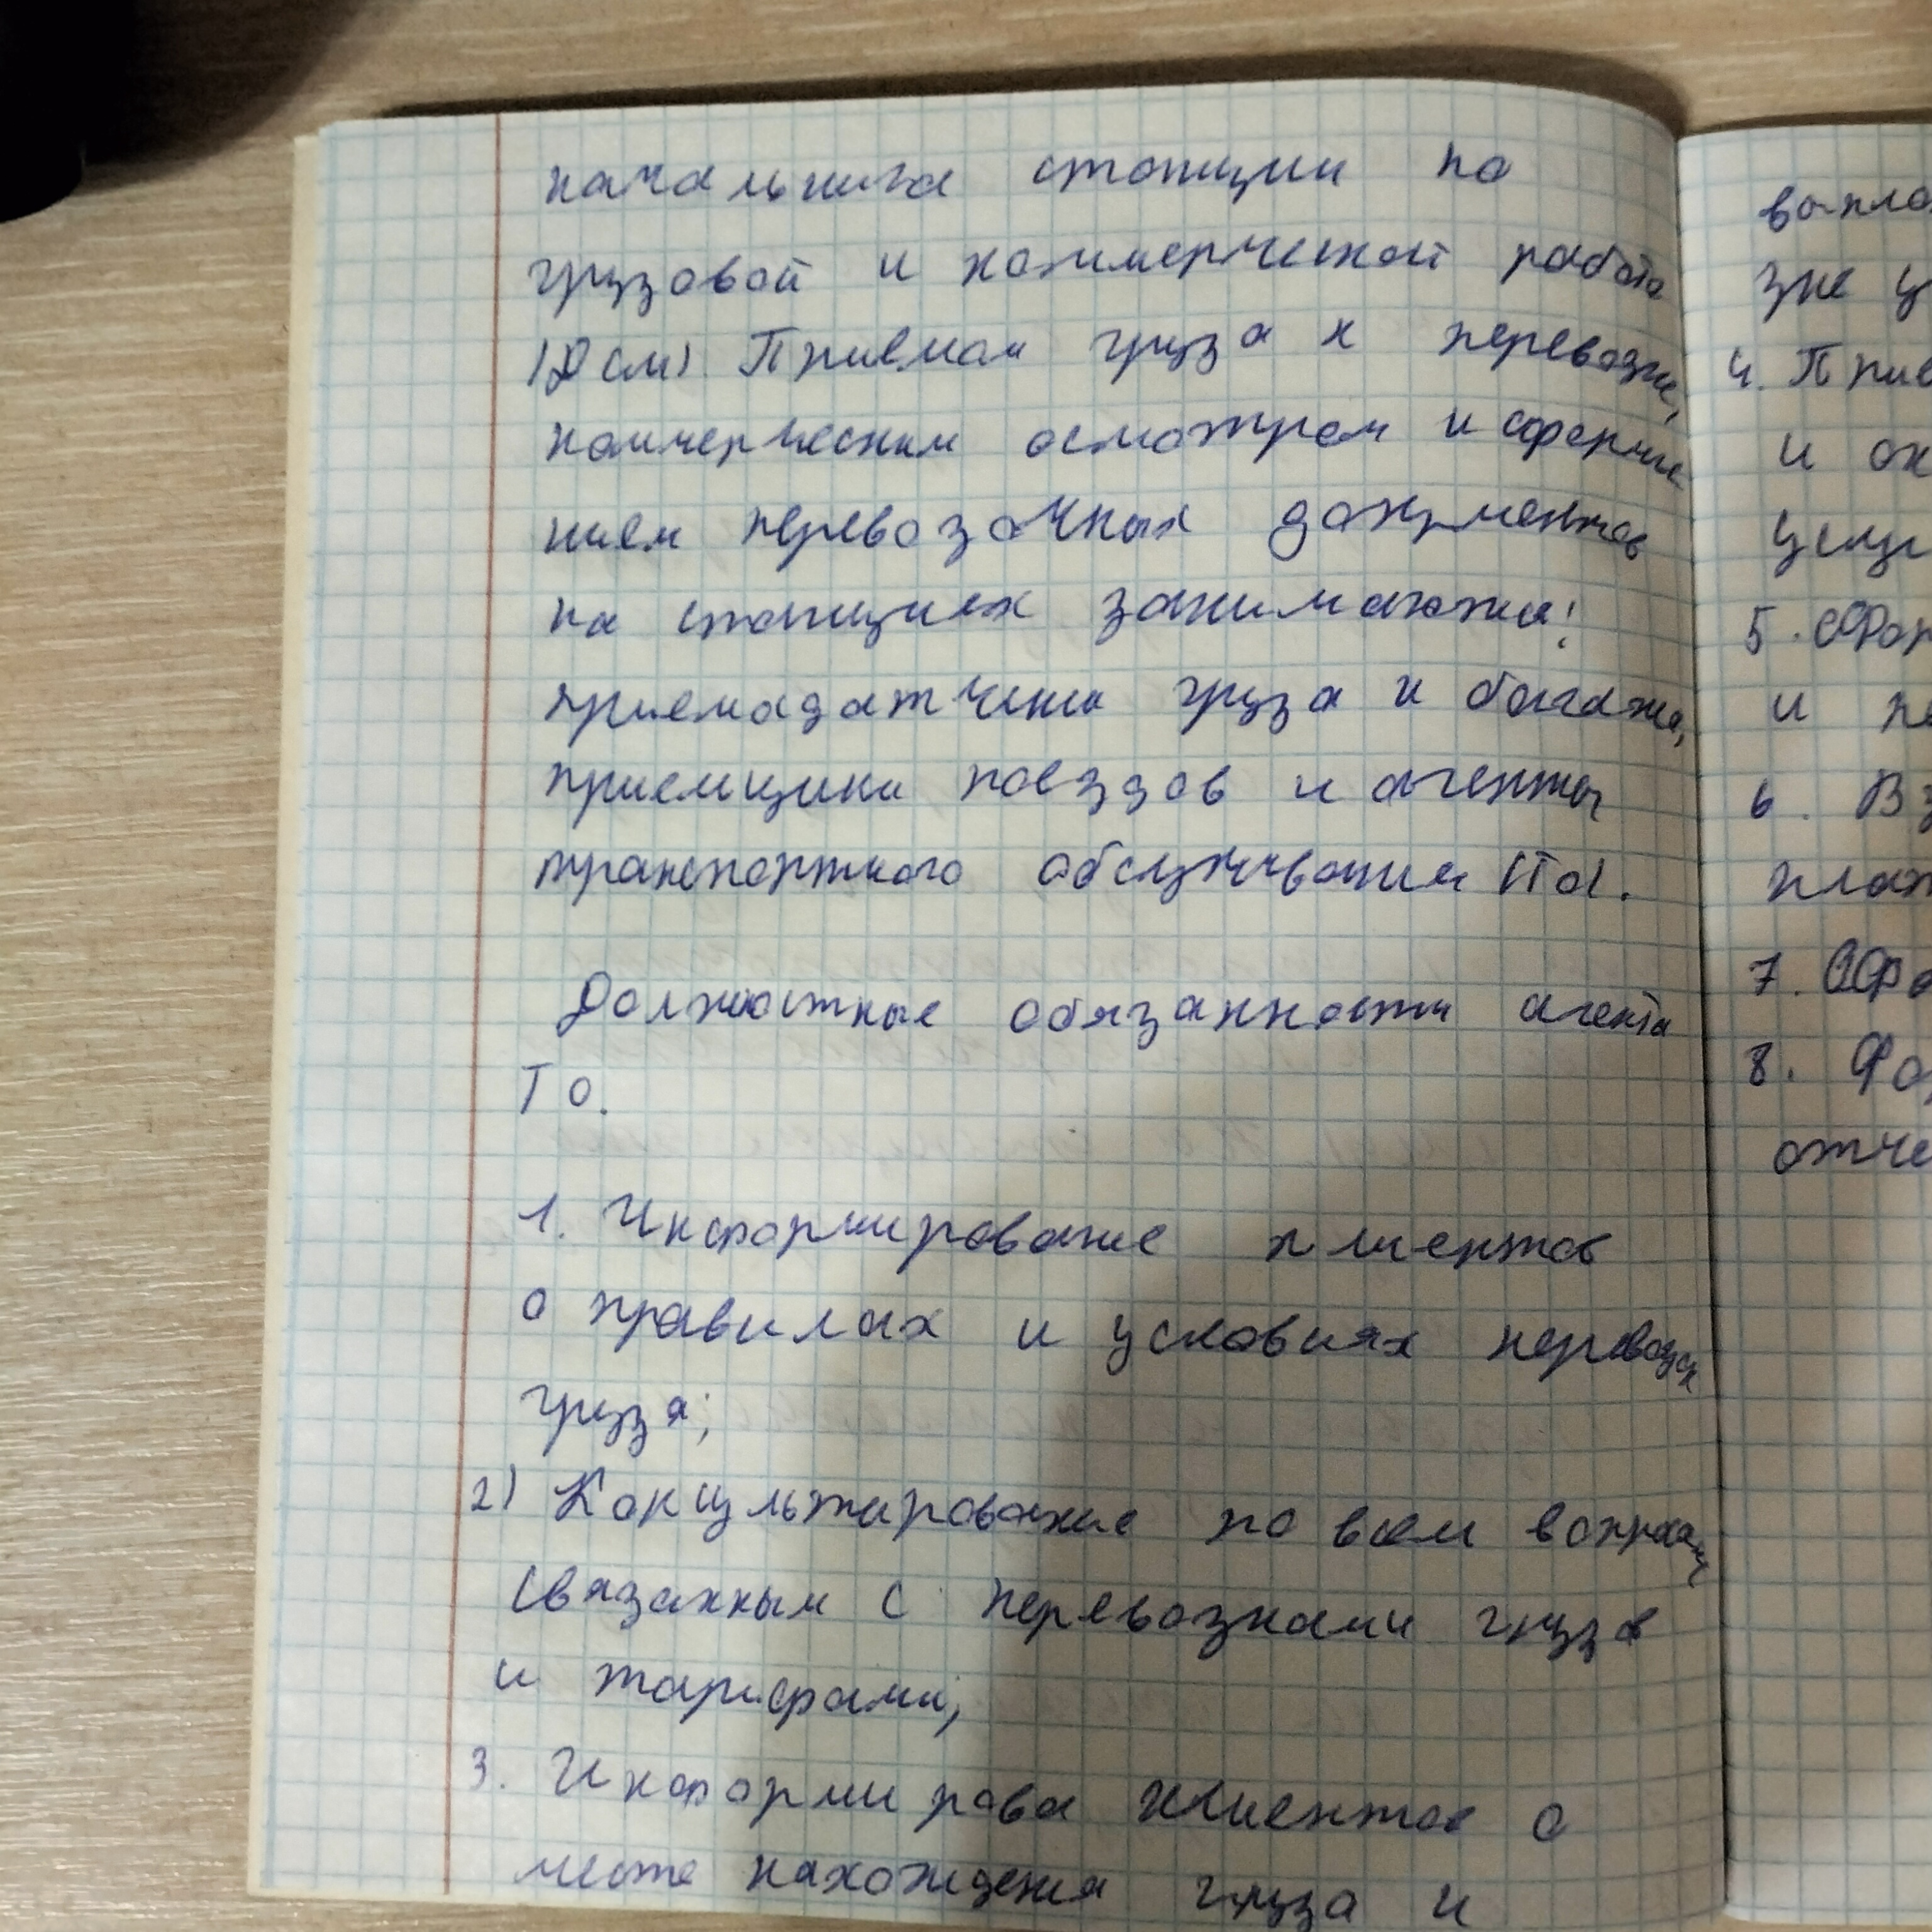 начальника станции по
грузовой и коммерческой работе
(Дсм) Приемом груза к перевозке,
коммерческим осмотром и оформле
нием перевозочных документов
на станциях занимаются:
приемосдатчики груза и багажа,
приемщики поездов и агенты
транспортного обслуживания (ТО).
Должностные обязанности агента
ТО.
1. Информирование клиентов
о правилах и условиях перевозок
груза;
2) Консультирование по всем вопросам
связанным с перевозками груза
и тарифами;
3. Информирова клиентов о
месте нахождения груза и
зке
4. Прие
и
5. Офор
и
6. Вз
плат
7. Офо
8. Фо
отче